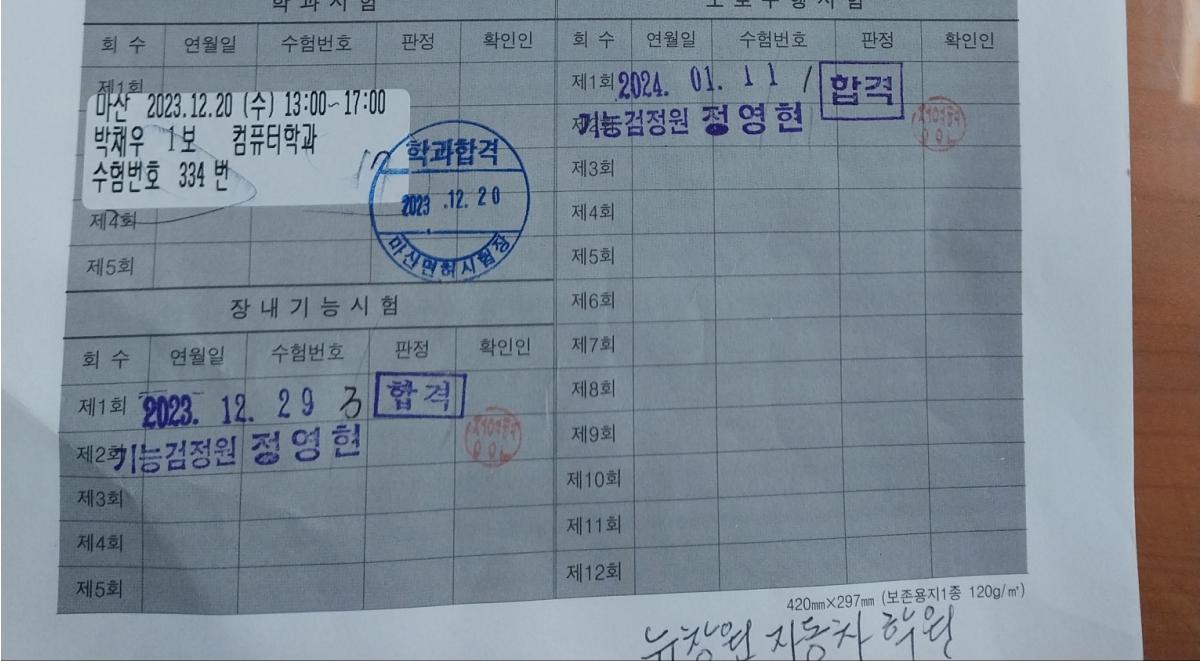 학 과 시 험
회 수 연월일 수험번호 판정 확인인
제1회
마산 2023.12.20 (수) 13:00~17:00
박채우 1보 컴퓨터학과
수험번호 334 번
학과합격
2023 .12. 20
마산면허시험장
제4회
제5회
장 내 기 능 시 험
회 수 연월일 수험번호 판정 확인인
제1회 2023. 12. 29 3 합격
제2회 기능검정원 정영현
제3회
제4회
제5회
도 로 주 행 시 험
회 수 연월일 수험번호 판정 확인인
제1회 2024. 01. 11 / 합격
제2회 기능검정원 정영현
제3회
제4회
제5회
제6회
제7회
제8회
제9회
제10회
제11회
제12회
420㎜×297㎜ (보존용지1종 120g/㎡)
뉴창원 자동차 학원